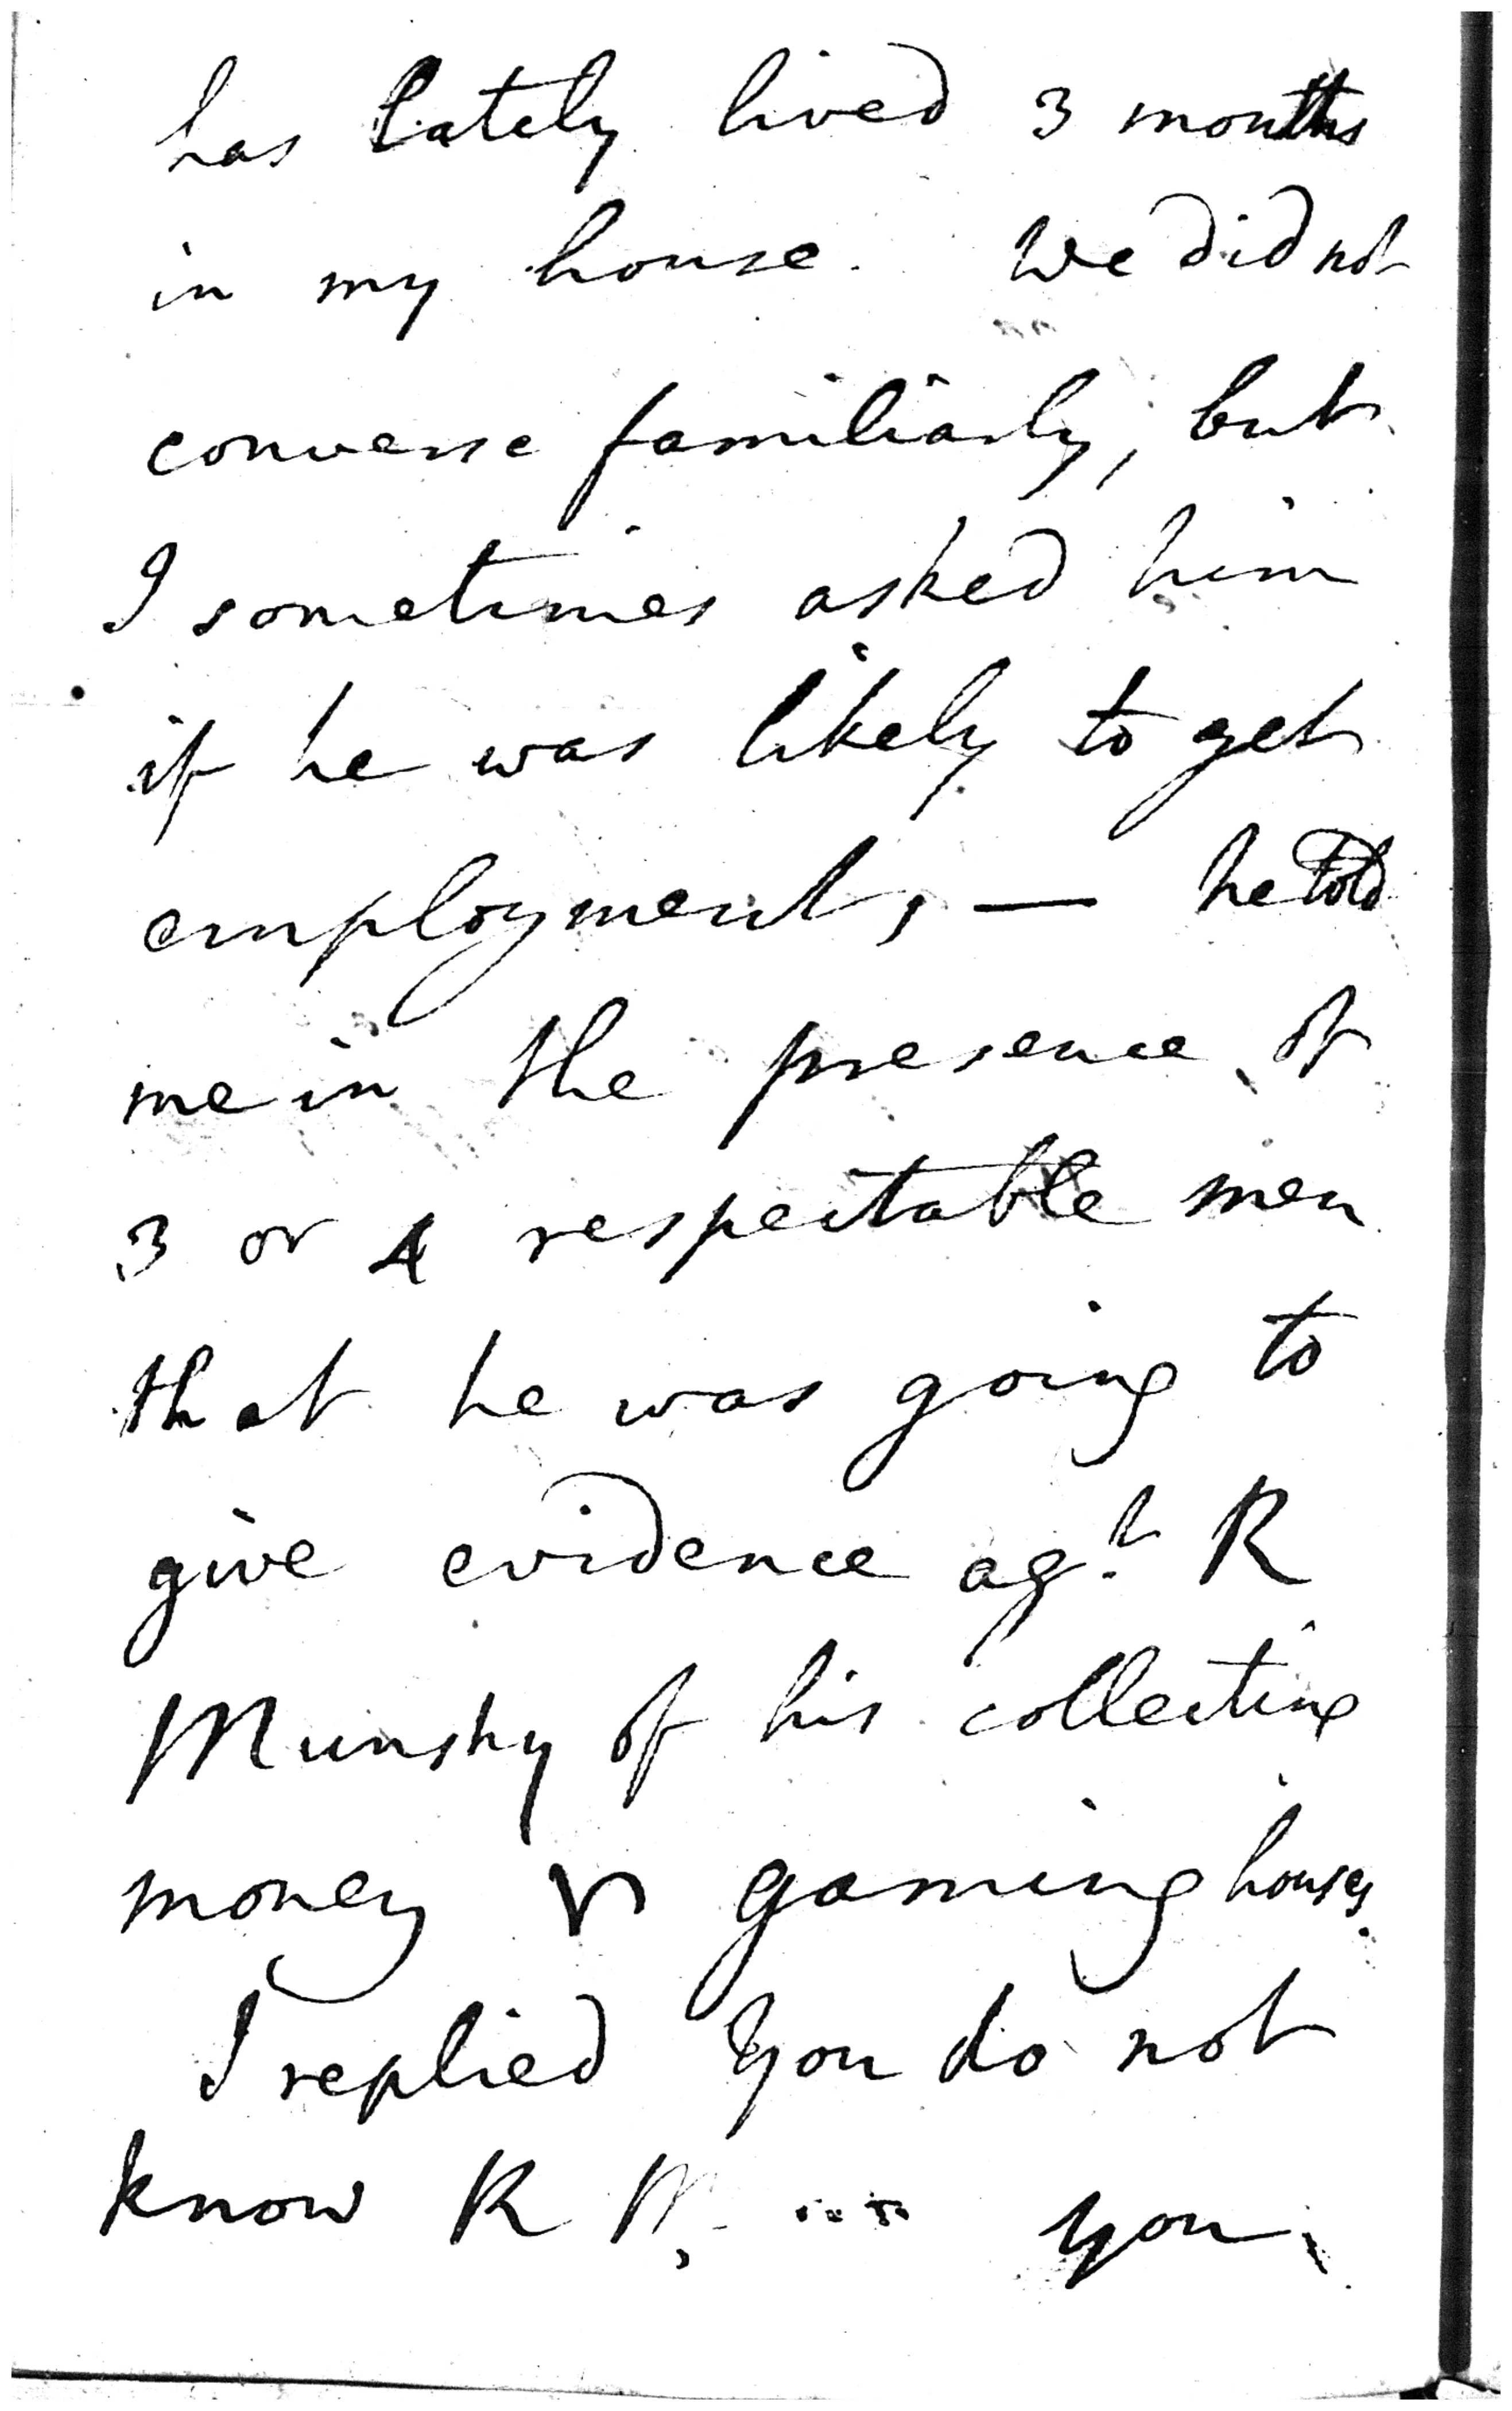 has lately lived 3 months
in my house. We did not
converse familiarly, but
I sometimes asked him
if he was likely to get
employment, — he told
me in the presence of
3 or 4 respectable men
that he was going to
give evidence agt. R
Munshy of his collecting
money gaming houses.
I replied you do not
know R M, you